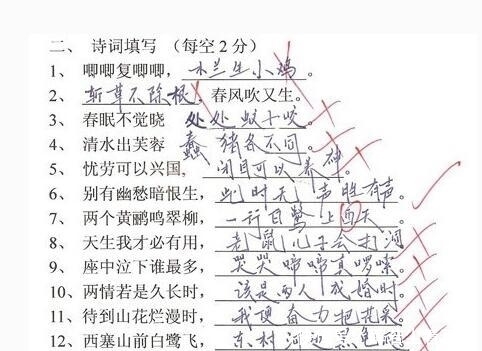 二、诗词填写 （每空2分）
1、唧唧复唧唧，木兰生小鸡。
2、斩草不除根，春风吹又生。
3、春眠不觉晓 处处蚊子咬
4、清水出芙蓉 蠢猪各不同。
5、忧劳可以兴国，闭目可以养神
6、别有幽愁暗恨生，此时无声胜有声
7、两个黄鹂鸣翠柳，一行白鹭上西天
8、天生我才必有用，老鼠儿子会打洞
9、座中泣下谁最多，哭哭啼啼真啰嗦
10、两情若是久长时，该是两人成婚时
11、待到山花烂漫时，我便奋力把花采
12、西塞山前白鹭飞，东村河边黑龟